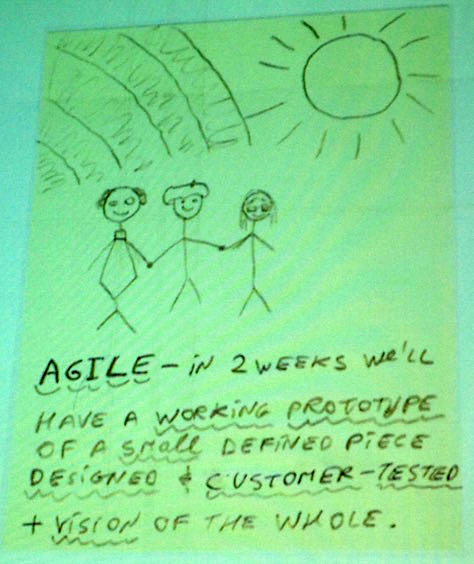 AGILE - IN 2 WEEKS WE'LL
HAVE A WORKING PROTOTYPE
OF A SMALL DEFINED PIECE
DESIGNED & CUSTOMER-TESTED
+ VISION OF THE WHOLE.